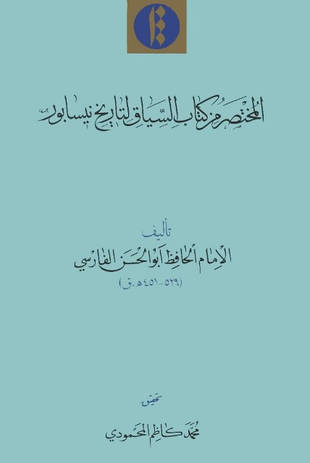 المختصر من كتاب السياق لتاريخ نيسابور
تأليف
الإمام الحافظ أبو الحسن الفارسي
(٤٥١-٥٢٩ ھ.ق)
تحقيق
محمد كاظم المحمودي